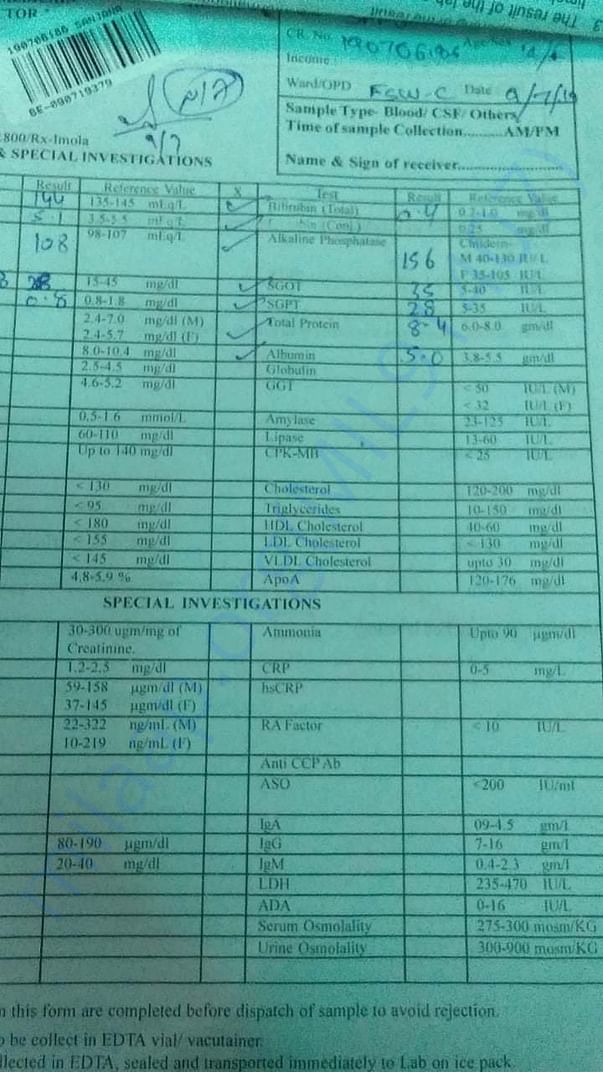 3 The result of the lab
TOR
190706186 SANJANA
BE-090719379
CR. No. 190706186
Income
Ward/OPD FSW-C Date 9/7/19
Sample Type- Blood/ CSF/ Others
Time of sample Collection..........AM/PM
Name & Sign of receiver
9/7
800/Rx-Imola
& SPECIAL INVESTIGATIONS
Result Reference Value X Test Result Reference Value
144 135-145 mEq/L Bilirubin (Total) 0.4 0.2-1.0 mg/dl
5.1 3.5-5.5 mEq/L (Conj.) 0.25 mg/dl
108 98-107 mEq/L Alkaline Phosphatase 156 Children-
M 40-130 IU/L
F 35-105 IU/L
28 15-45 mg/dl SGOT 35 5-40 IU/L
0.8 0.8-1.8 mg/dl SGPT 28 5-35 IU/L
2.4-7.0 mg/dl (M) Total Protein 8.4 6.0-8.0 gm/dl
2.4-5.7 mg/dl (F)
8.0-10.4 mg/dl Albumin 5.0 3.8-5.5 gm/dl
2.5-4.5 mg/dl Globulin
4.6-5.2 mg/dl GGT < 50 IU/L (M)
< 32 IU/L (F)
0.5-1.6 mmol/L Amylase 23-125 IU/L
60-110 mg/dl Lipase 13-60 IU/L
Up to 140 mg/dl CPK-MB < 25 IU/L
< 130 mg/dl Cholesterol 120-200 mg/dl
< 95 mg/dl Triglycerides 10-150 mg/dl
< 180 mg/dl HDL Cholesterol 40-60 mg/dl
< 155 mg/dl LDL Cholesterol < 130 mg/dl
< 145 mg/dl VLDL Cholesterol upto 30 mg/dl
4.8-5.9 % ApoA 120-176 mg/dl
SPECIAL INVESTIGATIONS
30-300 ugm/mg of Ammonia Upto 90 µgm/dl
Creatinine.
1.2-2.5 mg/dl CRP 0-5 mg/L
59-158 µgm/dl (M) hsCRP
37-145 µgm/dl (F)
22-322 ng/mL (M) RA Factor < 10 IU/L
10-219 ng/mL (F)
Anti CCP Ab
ASO <200 IU/ml
IgA 09-4.5 gm/l
80-190 µgm/dl IgG 7-16 gm/l
20-40 mg/dl IgM 0.4-2.3 gm/l
LDH 235-470 IU/L
ADA 0-16 IU/L
Serum Osmolality 275-300 mosm/KG
Urine Osmolality 300-900 mosm/KG
n this form are completed before dispatch of sample to avoid rejection.
o be collect in EDTA vial/ vacutainer.
llected in EDTA, sealed and transported immediately to Lab on ice pack.